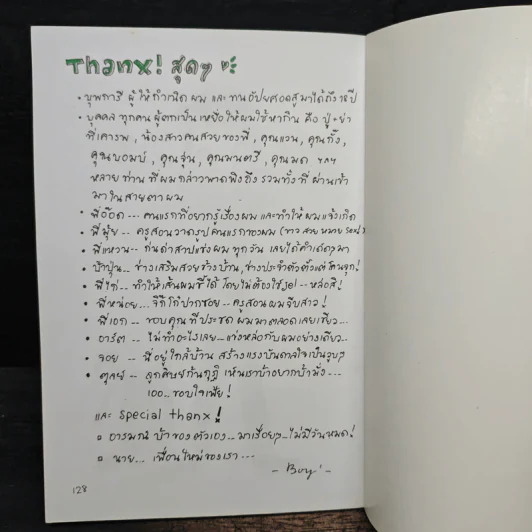 Thanx! สุดๆ
• บุพการี ผู้ให้กำเนิด ผม และ ทน อัปยศอดสูมาได้ถึง 18 ปี
• บุคคล ทุกคน ผู้ตกเป็น เหยื่อ ให้ผมใช้หากิน คือ ปู่+ย่า
ที่เคารพ, น้องสาวคนสวยของพี่, คุณแวน, คุณกั้ง,
คุณบอมบ์, คุณจุ่น, คุณมนตรี, คุณมด ฯลฯ
หลายท่าน ที่ผมกล่าวพาดพิงถึง รวมทั้งที่ ผ่านเข้า
มาในสายตาผม
• พี่อ๊อด --- คนแรกที่อยากรู้เรื่องผม และทำให้ ผมแจ้งเกิด
• พี่มุ้ย -- ครูสอนวาดรูป คนแรกของผม (ขาว สวย หมวย
• พี่แหวน -- ก่นด่าสาปแช่งผม ทุกวัน เลยได้คำเด็ดๆมา
• ป้าปุ่น.. ช่างเสริมสวยข้างบ้าน, ช่างประจำตัวตั้งแต่โกนจุก!
• พี่ไก่ -- ทำให้เส้นผมชี้ได้ โดยไม่ต้องใช้ jel -- หล่อสิ!
• พี่หน่อย... จิ๊กโก๋ปากซอย -- ครูสอนผมจีบสาว!
• พี่เอก -- ขอบคุณที่ประชด ผมมาตลอดเลยเชียว...
• อาร์ต -- ไม่ทำอะไรเลย... แข่งหล่อกับผมอย่างเดียว...
• จอย -- พี่อยู่ใกล้บ้าน สร้างแรงบันดาลใจเป็นวูบๆ
• ตุลย์ -- ลูกศิษย์ก้นกุฏิ เห็นเราบ้าอยากบ้ามั่ง ---
เออ.. ขอบใจเฟ้ย!
และ special thanx!
▫ อารมณ์ บ้าของตัวเอง... มาเรื่อยๆ.. ไม่มีวันหมด!
▫ นาย... เพื่อนใหม่ของเรา ---
- Boy' -
128